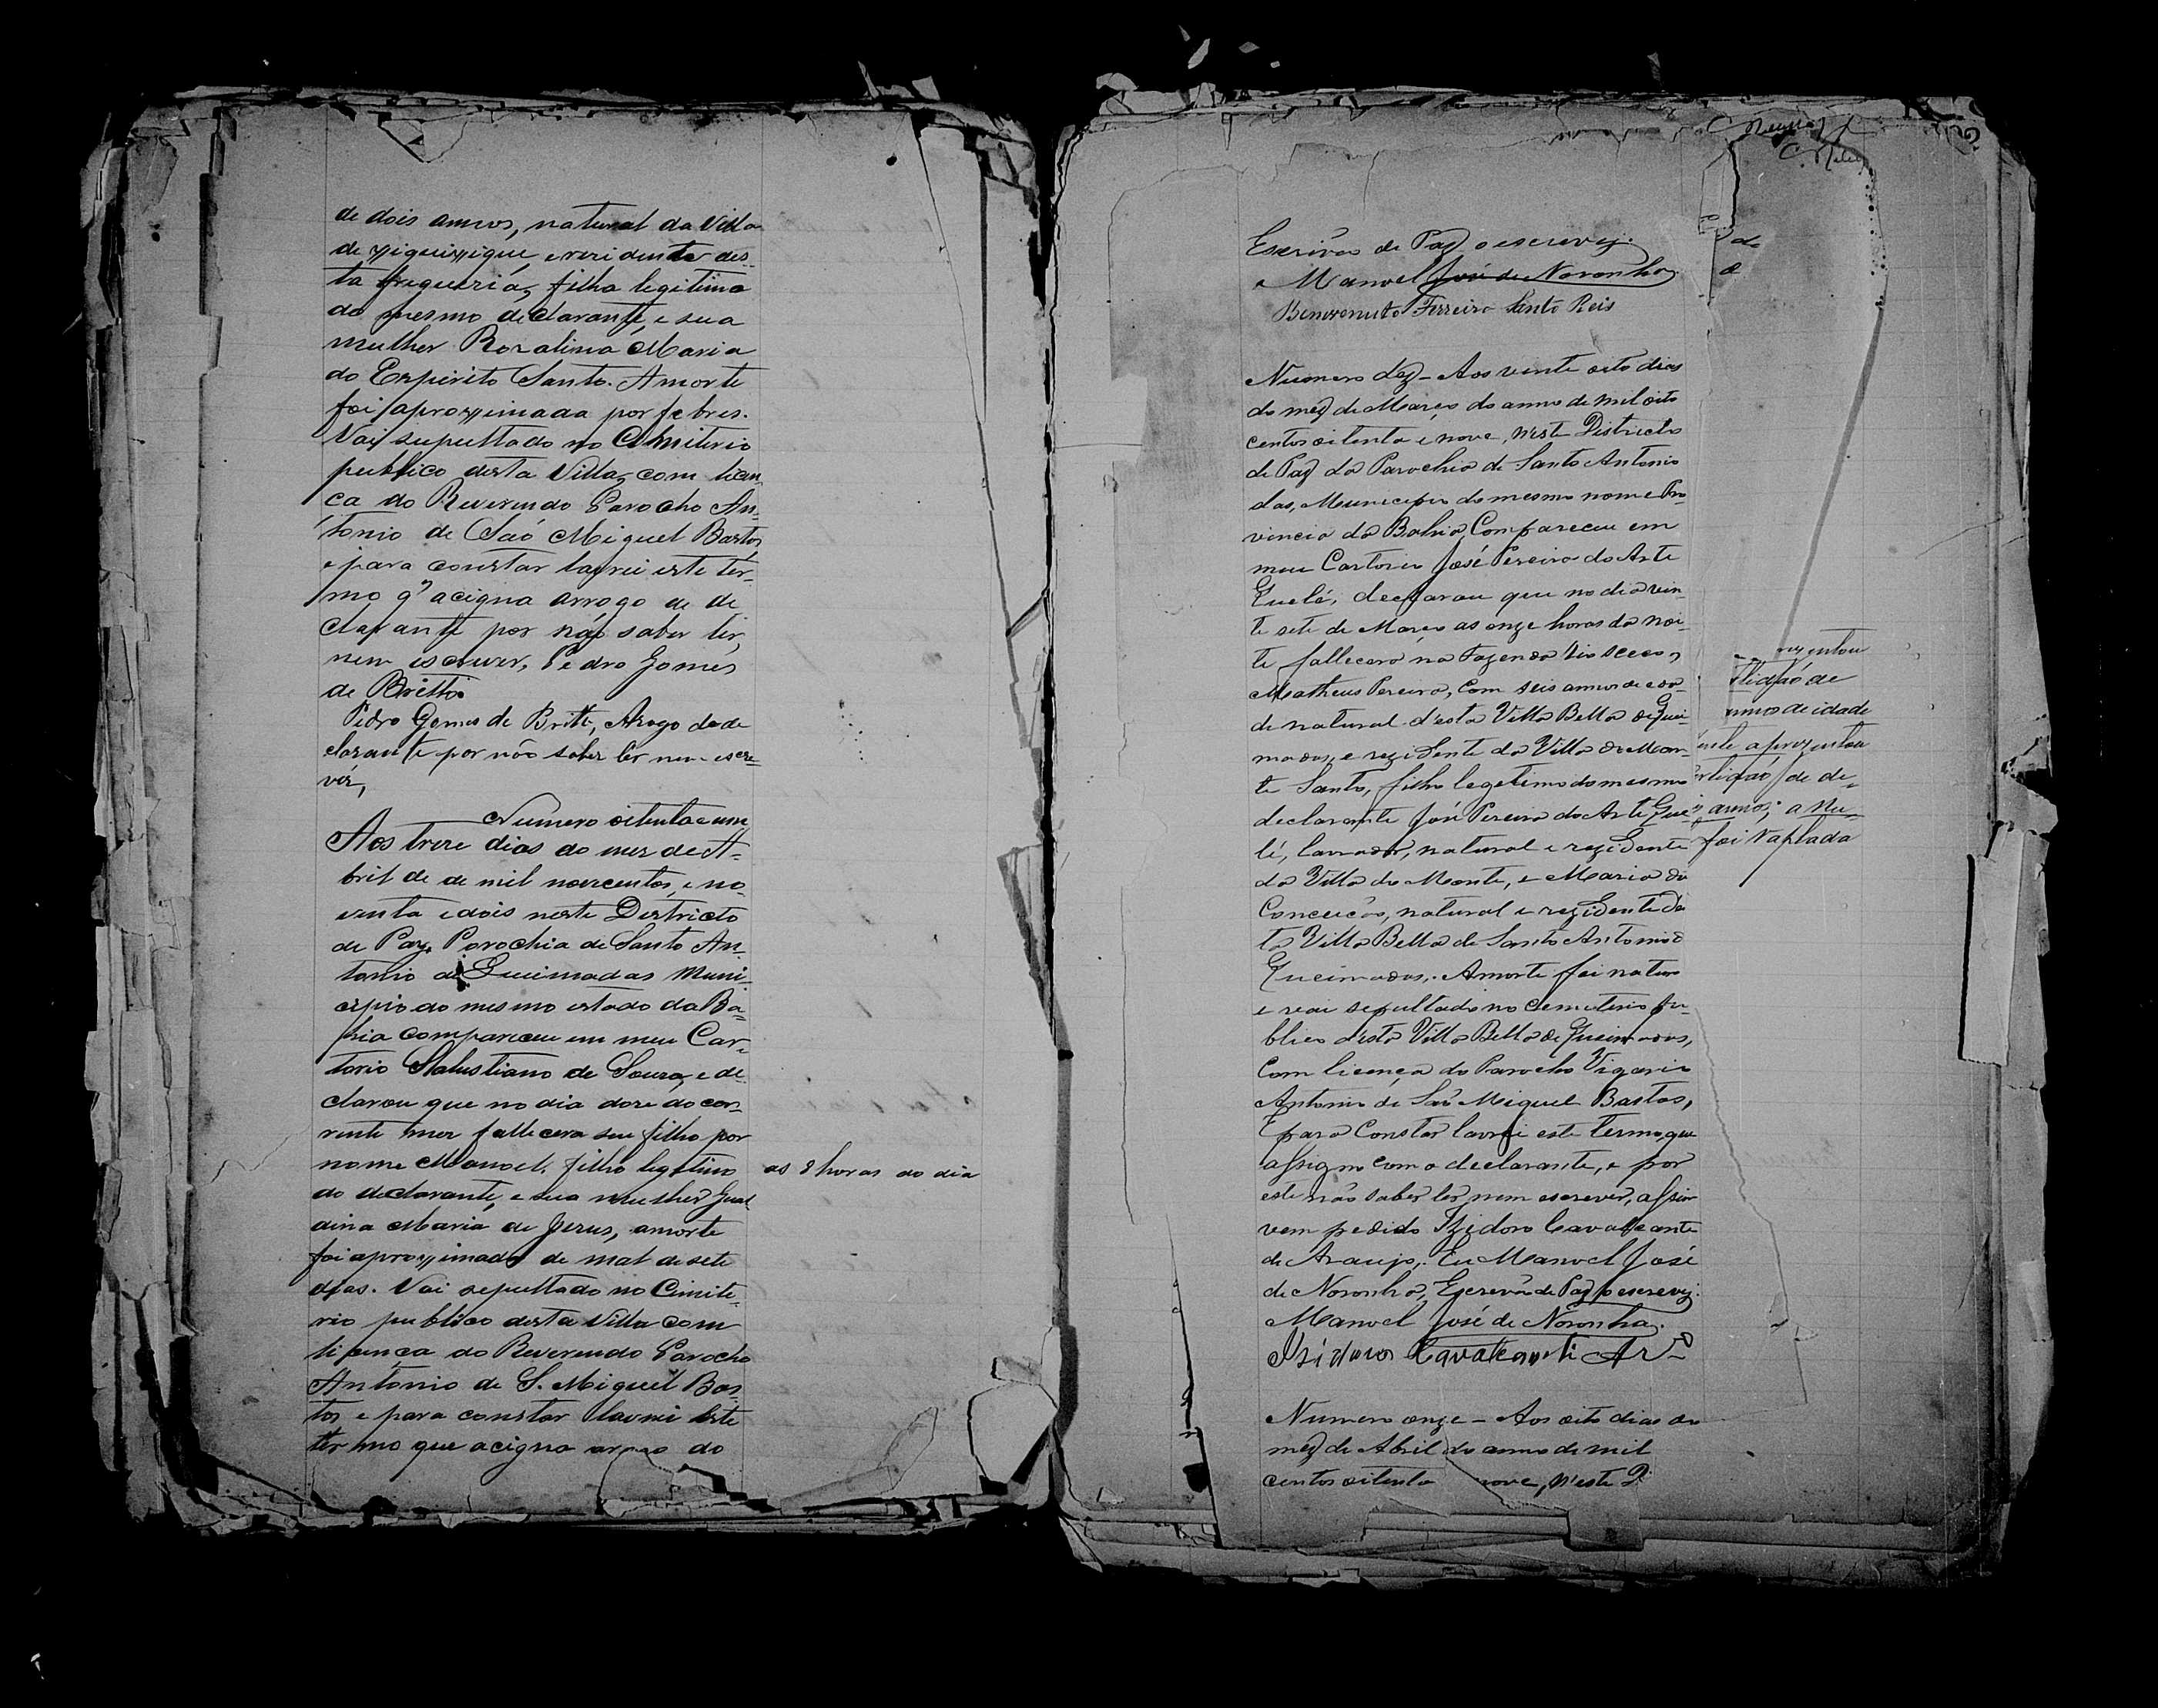 de dois annos, natural da Villa
de xiquixique, e rezidente des-
ta freguezia, filha legitima
do mesmo declarante, e sua
mulher Rozalina Maria
do Espirito Santo. A morte
foi aproximada por febres.
Vai supultado no Cemiterio
publico desta Villa, com licen
ça do Reverendo Parocho An-
tonio de São Miguel Bastos,
e para constar lavrei este ter-
mo q' acigna arrogo de de
clarante por não saber ler,
nem escrever, Pedro Gomes
de Britto.
Pedro Gomes de Britto, Arogo do de
clarante por não saber ler nem escre-
ver,
Numero oitenta e um
Aos treze dias do mez de A-
bril de de mil novecentos, e no-
venta e dois neste Districto
de Paz, Parochia de Santo An-
tonio de Queimadas Muni-
cipio do mesmo estado da Ba-
hia compareceu em meu Car-
torio Salustiano de Souza, e de
clarou que no dia doze do cor-
rente mez fallecera seu filho por
nome Manoel, filho legitimo
as 8 horas do dia
do declarante, e sua mulher Gual
dina Maria de Jezus, amorte
foi aproximado de mal de sete
dias. Vai sepultado no Cimite-
rio publico desta Villa com
licença do Reverendo Parocho
Antonio de S. Miguel Bas-
tos e para constar lavrei este
termo que acigna arogo do
Escrivão de Paz o escrevy.
Manoel José de Noronha
Benvenuto Ferreira Santo Reis
Numero dez - Aos vente oito dias
do mez de Março do anno de mil oito
centos oitenta e nove, n'este Districto
de Paz da Parochia de Santo Antonio
das, Municipio do mesmo nome Pro
vincia da Bahia, Compareceu em
meu Cartorio José Pereira do Arte
Quelé, declarou que no dia vin-
te sete de Março as onze horas da noi-
te fallecera na Fazenda Rio Seco,
Matheus Pereira, com seis annos de eda-
de natural d'esta Villa Bella de Quei-
madas, e rezidente da Villa do Mon-
te Santo, filho legetimo do mesmo
declarante José Pereira do Arte Que
lé, lavrador, natural e rezidente
da Villa do Monte, e Maria da
Conceicão, natural e rezidente d'es
ta Villa Bella de Santo Antonio d
Queimadas. A morte foi natur
e vai sepultado no Cemeterio pu-
blico d'esta Villa Bella de Queimadas,
Com licença do Parocho Vigario
Antonio de São Miguel Bastos,
E para Constar lavrei este termo, que
assigno com o declarante, e por
este não saber ler nem escrever, assim
vem pedido Izidoro Cavalcante
de Araujo. Eu Manoel José
de Noronha, Escrevão de Paz o escrevy.
Manoel José de Noronha.
Isidoro Cavalcanti Ar
Numero onze - Aos oito dias do
mez de Abril do anno de mil
centos oitenta nove, n'este D
de
tidão de
annos de idade
ente aprezentou
tidão de de-
annos; a
foi